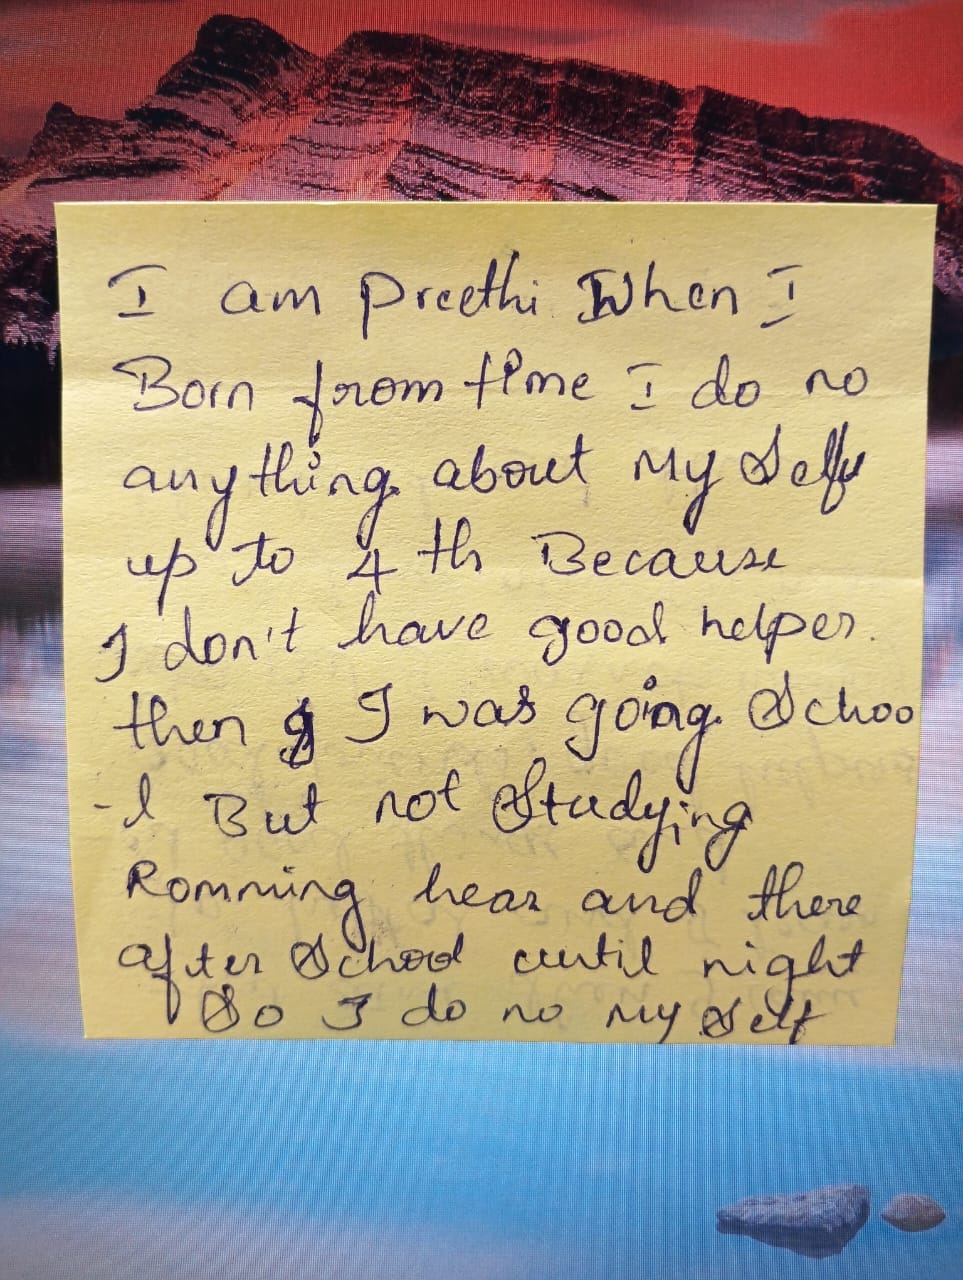 I am Preethi When I
Born from time I do no
anything about My Selfy
up to 4 th Because
I don't have good helper.
then I was going Schoo
-l But not Studying
Romming hear and there
after School until night
So I do no My self